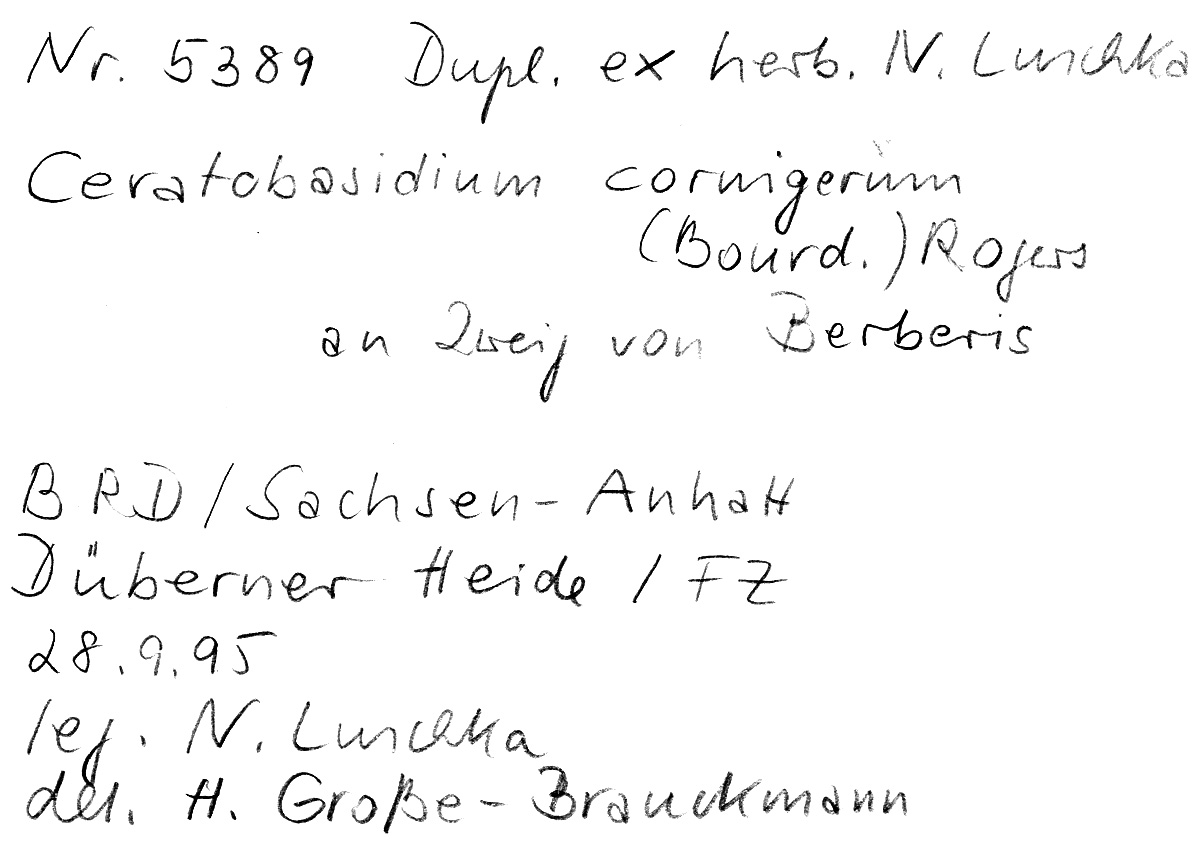 Nr. 5389 Dupl. ex herb. N. Luschka
Ceratobasidium cornigerum
(Bourd.) Rogers
an Zweig von Berberis
BRD/Sachsen-Anhalt
Düberner Heide / FZ
28.9.95
leg. N. Luschka
det. H. Große-Brauckmann